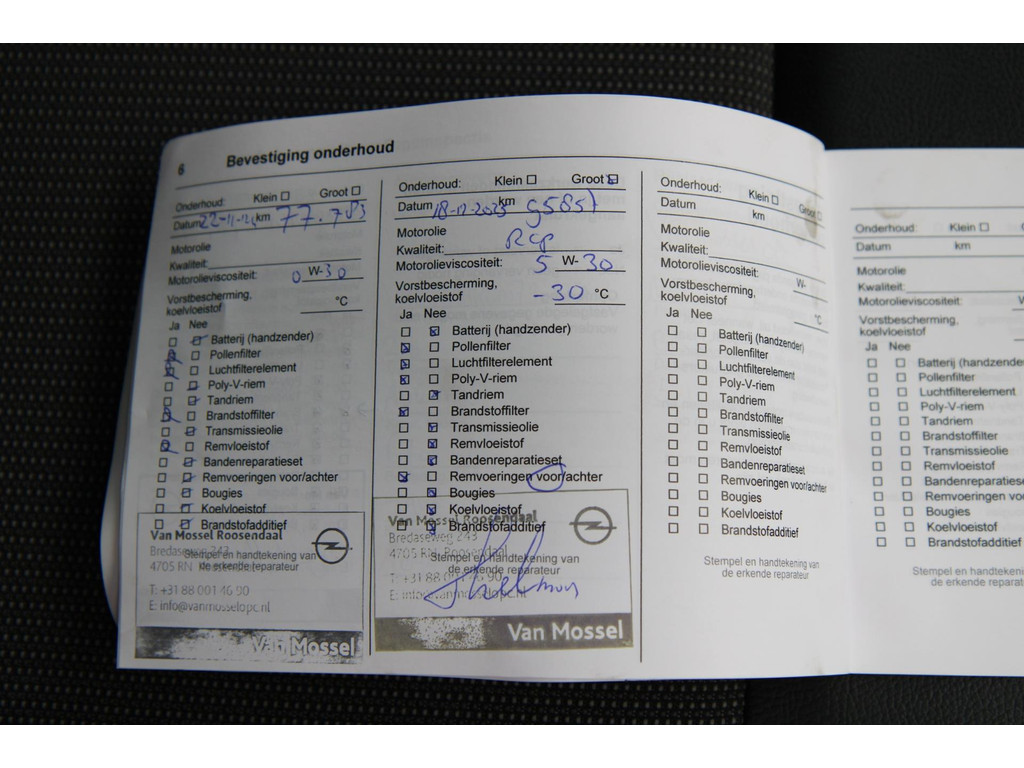 6 Bevestiging onderhoud
Onderhoud: Klein Groot
Datum 22-11-24 km 77.783
Motorolie
Kwaliteit:
Motorolieviscositeit: 0 W-30
Vorstbescherming, koelvloeistof °C
Ja Nee
Batterij (handzender)
Pollenfilter
Luchtfilterelement
Poly-V-riem
Tandriem
Brandstoffilter
Transmissieolie
Remvloeistof
Bandenreparatieset
Remvoeringen voor/achter
Bougies
Koelvloeistof
Brandstofadditief
Van Mossel Roosendaal
Bredaseweg 243
Stempel en handtekening van
4705 RN
de erkende reparateur
T: +31 88 001 46 90
E: info@vanmosselopc.nl
Van Mossel
Onderhoud: Klein Groot
Datum 18-12-2025 km 95857
Motorolie
Kwaliteit:
Motorolieviscositeit: 5 W-30
Vorstbescherming,
koelvloeistof -30 °C
Ja Nee
Batterij (handzender)
Pollenfilter
Luchtfilterelement
Poly-V-riem
Tandriem
Brandstoffilter
Transmissieolie
Remvloeistof
Bandenreparatieset
Remvoeringen voor/achter
Bougies
Koelvloeistof
Brandstofadditief
Van Mossel Roosendaal
Bredaseweg 243
4705 RN, Roosendaal
Stempel en handtekening van
de erkende reparateur
T: +31 88 001 46 90
E: info@vanmosselopc.nl
Van Mossel
Onderhoud: Klein Groot
Datum km
Motorolie
Kwaliteit:
Motorolieviscositeit: W-
Vorstbescherming,
koelvloeistof °C
Ja Nee
Batterij (handzender)
Pollenfilter
Luchtfilterelement
Poly-V-riem
Tandriem
Brandstoffilter
Transmissieolie
Remvloeistof
Bandenreparatieset
Remvoeringen voor/achter
Bougies
Koelvloeistof
Brandstofadditief
Stempel en handtekening van
de erkende reparateur
Onderhoud: Klein
Datum km
Motorolie
Kwaliteit:
Motorolieviscositeit:
Vorstbescherming,
koelvloeistof
Ja Nee
Batterij (handzender
Pollenfilter
Luchtfilterelement
Poly-V-riem
Tandriem
Brandstoffilter
Transmissieolie
Remvloeistof
Bandenreparatiese
Remvoeringen voor
Bougies
Koelvloeistof
Brandstofadditief
Stempel en handtekeni
de erkende reparat